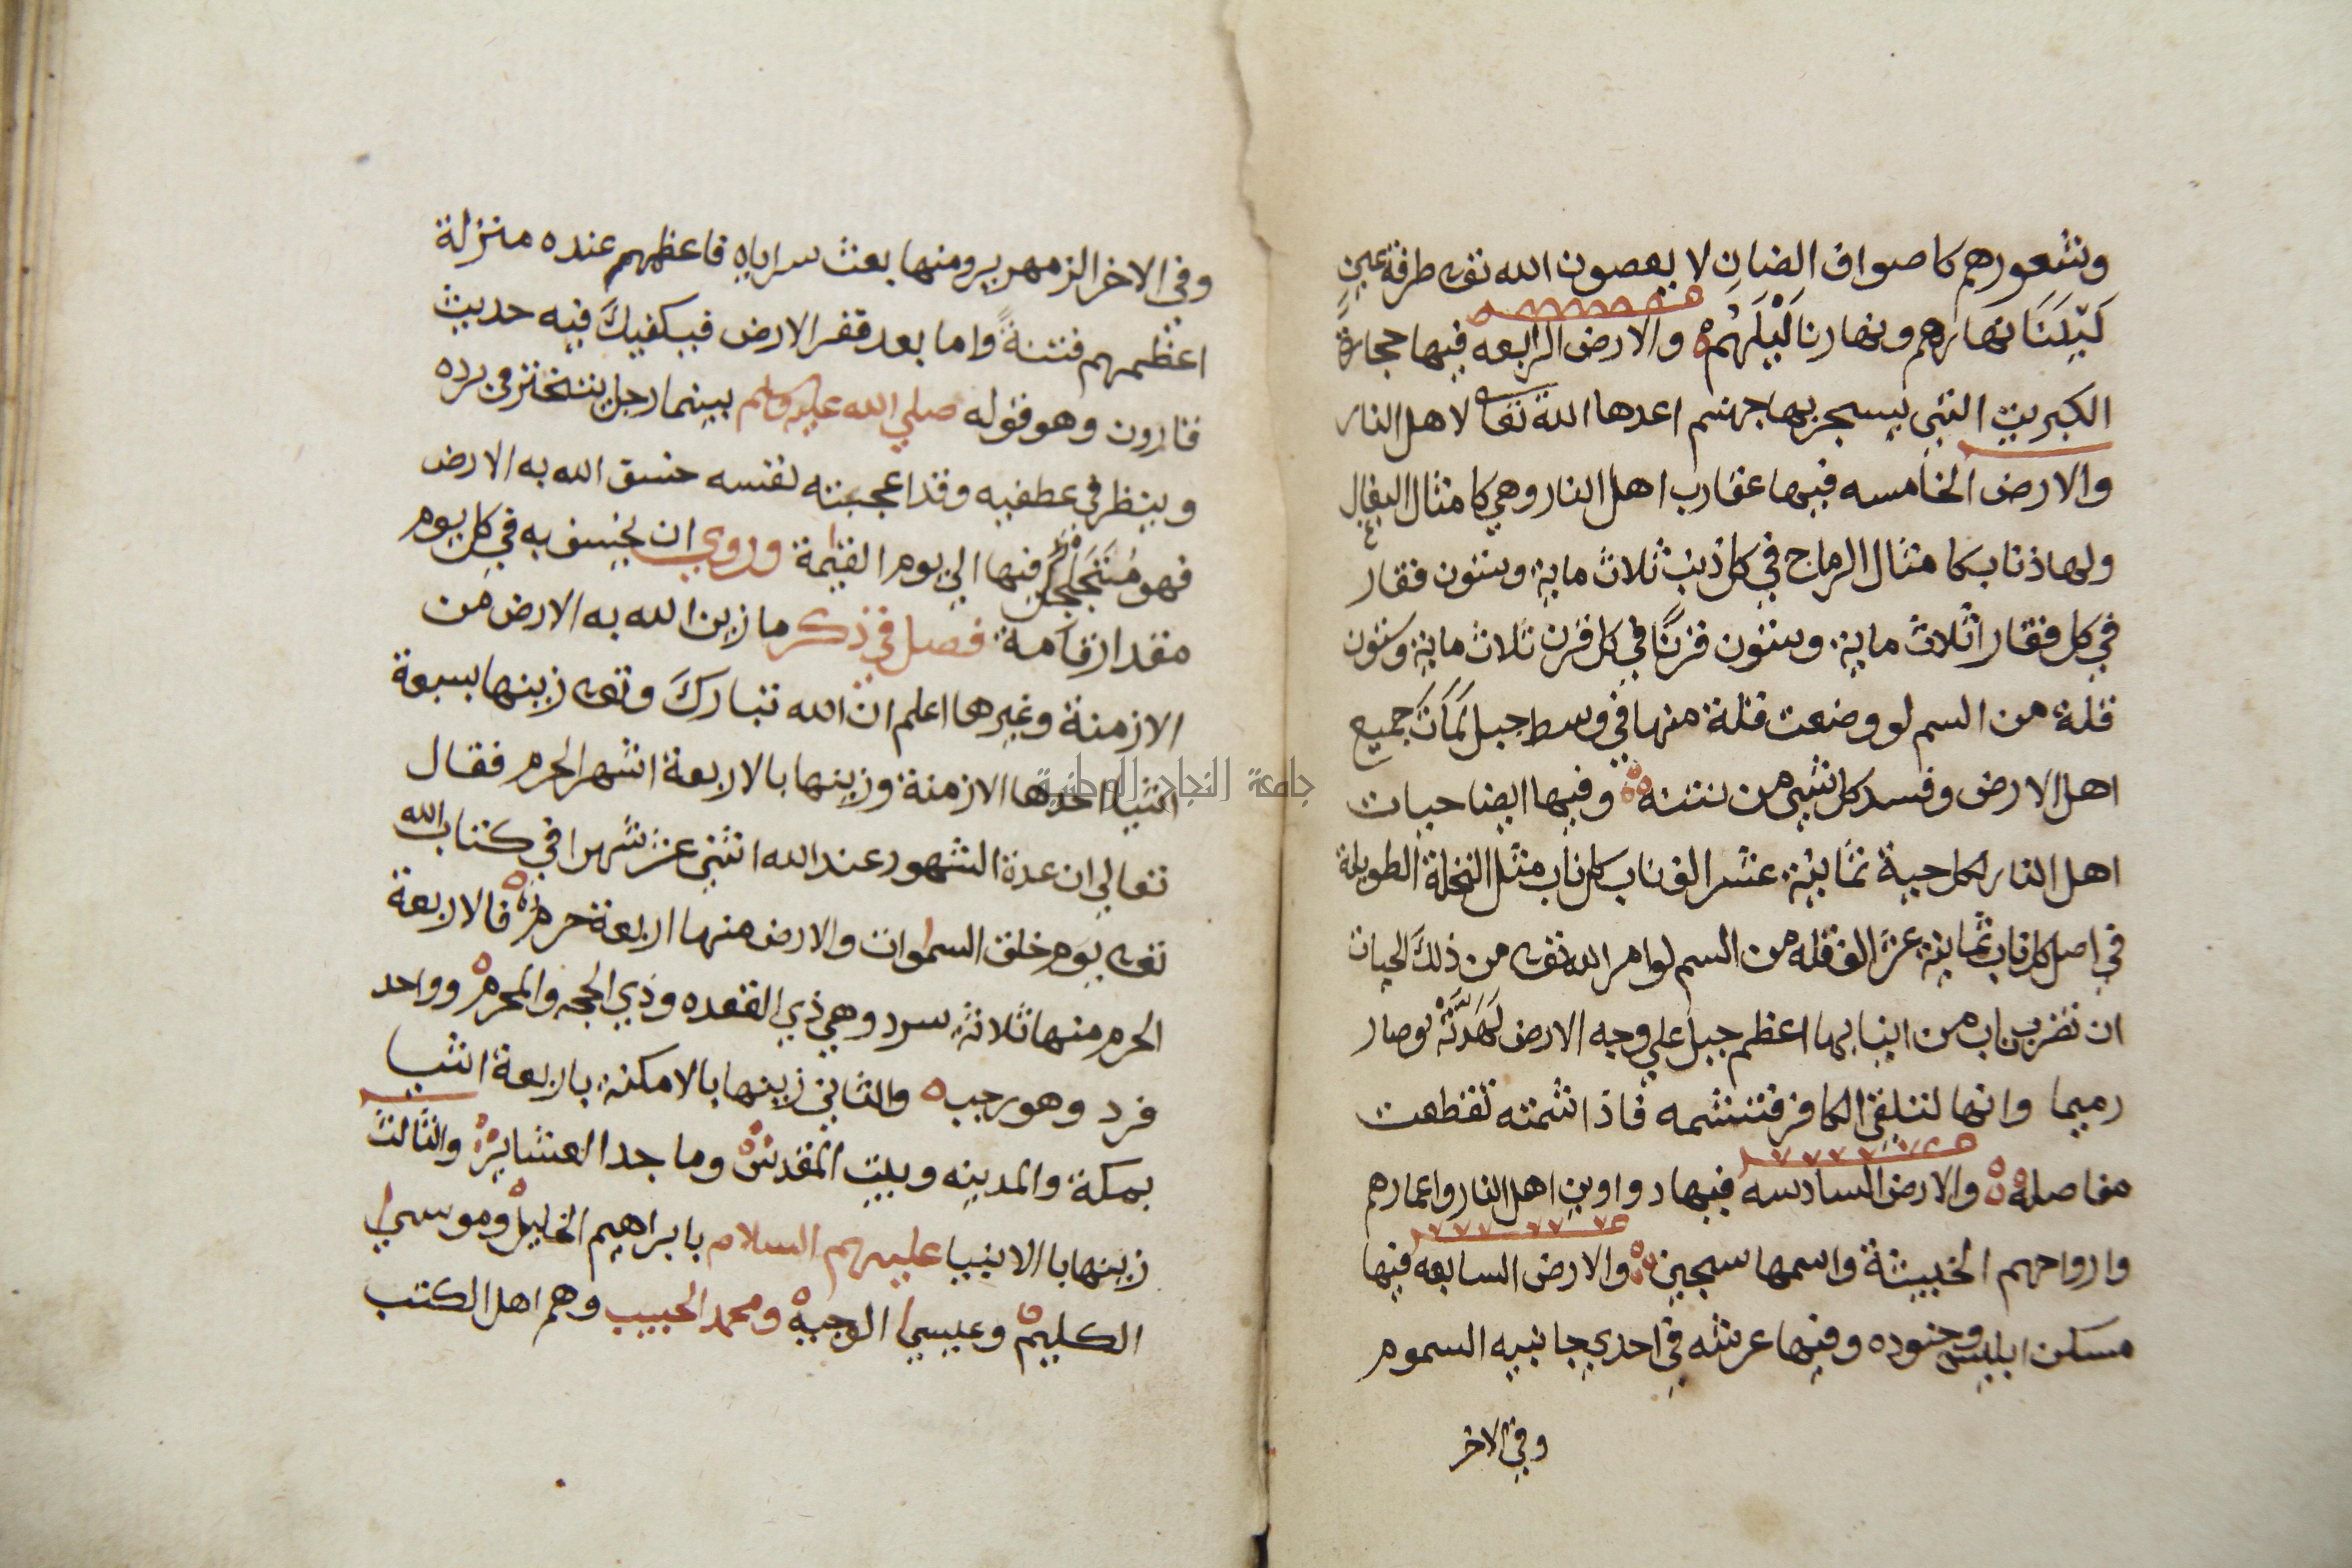 وشعورهم كاصواف الضان لا يعصون الله تعى طرفة عين
لَيْلَنَا نهارهم ونهارنا لَيْلَهُم والارض الرابعه فيها حجارة
الكبريت التي يسجر بها جهنم اعدها الله تعا لاهل النار
والارض الخامسه فيها عقارب اهل النار وهي كامثال البغال
ولها ذناب كامثال الرماح في كل ذنب ثلاث ماية وستون فقار
في كل فقار اثلاث ماية وستون قرنًا في كل قرن ثلاث ماية وستون
قلة من السم لو وضعت قلة منها في وسط جبل لَمَاتَ جميع
اهل الارض وفسد كل شي من نتنه وفيها ايضا حيات
اهل النار لكل حية ثمانية عشر الف ناب كل ناب مثل النخلة الطويلة
في اصل كل ناب ثمانية عشر الف قله من السم لو امر الله تعى من ذلك الحيات
ان تضرب بناب من انيابها اعظم جبل علي وجه الارض لَهَدَّتْهُ وصار
رميما وانها لتلقي الكافر فتنشمه فاذا نشمته تقطعت
مفاصله والارض السادسه فيها دواوين اهل النار واعمارهم
وارواحهم الخبيثة واسمها سجين والارض السابعه فيها
مسكن ابليس وجنوده وفيها عرشه في احدي جانبيه السموم
وفي الاخر
وفي الاخر الزمهرير ومنها بعث سراياه فاعظمهم عنده منزلة
اعظمهم فتنةً واما بعد قفر الارض فيكفيكَ فيه حديث
قارون وهو قوله صلي الله عليه وسلم بينما رجل يتبختر في برده
وينظر في عطفيه وقد اعجبته نفسه خسف الله به الارض
فهو مُتَجَلْجِل فيها الي يوم القيمة وروي ان يخسف به في كل يوم
مقدار قامة فصل في ذكر ما زين الله به الارض من
الازمنة وغيرها اعلم ان الله تبارك وتعى زينها بسبعة
اشيا احدها الازمنة وزينها بالاربعة اشهر الحرم فقال
تعالي ان عدة الشهور عند الله اثني عشر شهرا في كتاب الله
تعى يوم خلق السموات والارض منها اربعة حرم فالاربعة
الحرم منها ثلاثة سرد وهي ذي القعده وذي الحجه والمحرم وواحد
فرد وهو رجب والثاني زينها بالامكنة باربعة اشيا
بمكة والمدينه وبيت المقدس وماجدا العشاير والثالث
زينها با الانبيا عليهم السلام بابراهيم الخليل وموسي
الكليم وعيسي الوجيه ومحمد الحبيب وهم اهل الكتب
جامعة النجاح الوطنية